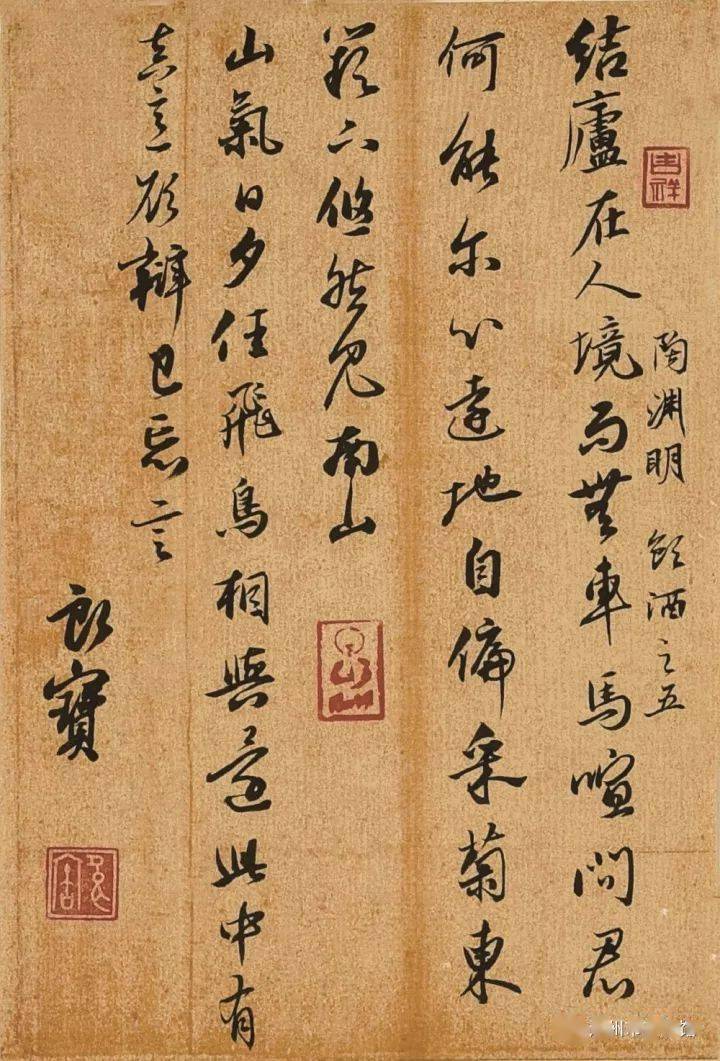 吉祥
陶渊明 飲酒之五
結廬在人境而無車馬喧問君
何能尔心遠地自偏采菊東
籬下悠然見南山
山氣日夕佳飛鳥相與還此中有
真意欲辯已忘言
寶